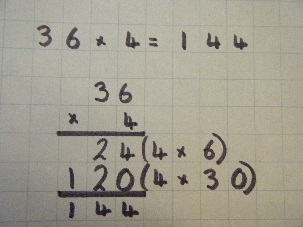 36 × 4 = 144
36
× 4
24 (4 × 6)
120 (4 × 30)
144